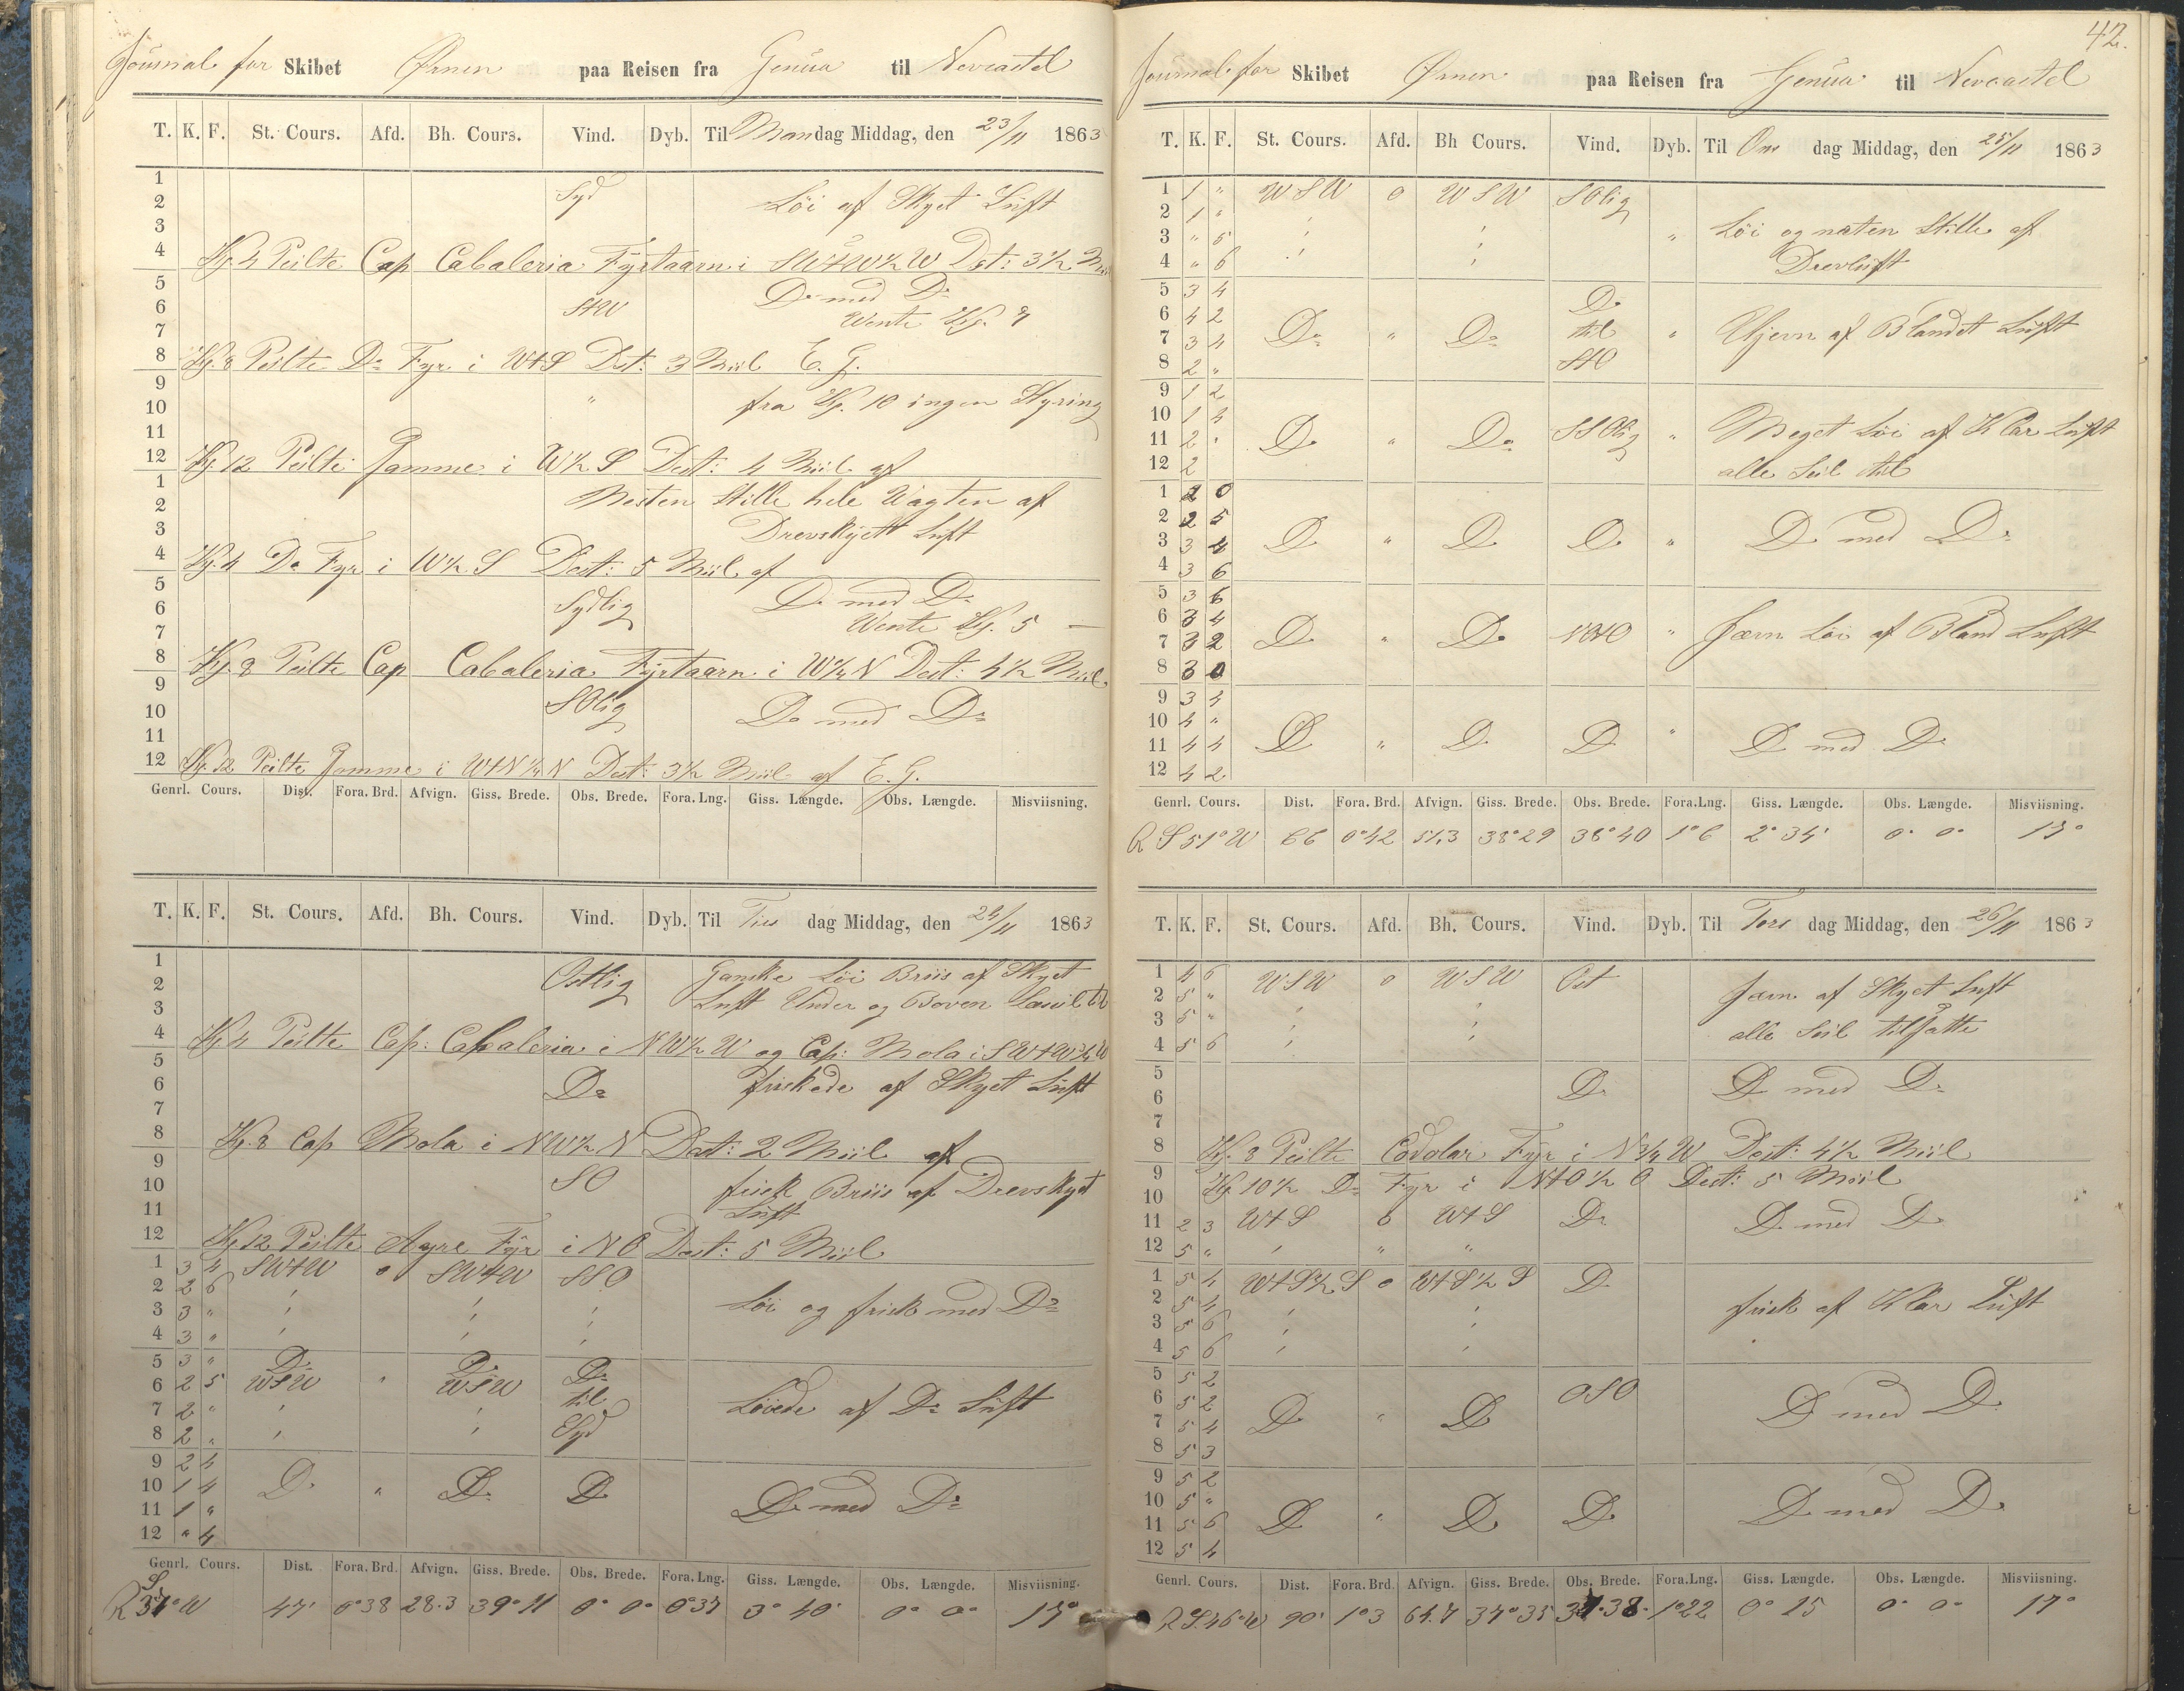 Journal for Skibet Ørnen paa Reisen fra Genua til Newcastel
T. K. F. St. Cours. Afd. Bh. Cours. Vind. Dyb. Til Mandag Middag, den 23/11 1863
1
2 Syd Löi af Skyet Luft
3
4 Kl. 4 Peilte Cap Cabaleria Fyrtaarn i SWtW½W Dist: 3½ Miil
5 Do med Do
6 StW Wente Kl. 7
7
8 Kl. 8 Peilte Do Fyr i WtS Dist: 3 Miil E. G.
9
10 " fra Kl. 10 ingen Styring
11
12 Kl. 12 Peilte Samme i W½S Dist: 4 Miil af
1 Nesten Stille hele Wagten af
2
3 Drevskyett Luft
4 Kl. 4 Do Fyr i W½S Dist: 5 Miil af
5 Do med Do
6 Sydlig Wente Kl. 5
7
8 Kl. 8 Peilte Cap Cabaleria Fyrtaarn i W¼N Dist: 4½ Miil
9
10 SOlig Do med Do
11
12 Kl. 12 Peilte Samme i WtN¼N Dist: 3½ Miil af E. G.
Genrl. Cours. Dist. Fora. Brd. Afvign. Giss. Brede. Obs. Brede. Fora. Lng. Giss. Længde. Obs. Længde. Misviisning.
T. K. F. St. Cours. Afd. Bh. Cours. Vind. Dyb. Til Tirs dag Middag, den 24/11 1863
1 Ostlig Ganske Löi Briis af Skyet
2 Luft Under og Boven Læseil til
3
4 Kl. 4 Peilte Cap: Cabaleria i NW½W og Cap: Mola i SWtW¾W
5
6 Do friskede af Skyet Luft
7
8 Kl. 8 Cap Mola i NW½N Dist: 2 Miil af
9
10 SO frisk Briis af Drevskyet
11 Luft
12 Kl. 12 Peilte Ayre Fyr i NO Dist: 5 Miil
1 3 4 SWtW 0 SWtW SSO
2 2 6 Löi og frisk med Do
3 3 "
4 3 "
5 3 " Do Do Do
6 2 5 WSW " WSW til Löiede af Do Luft
7 2 " Syd
8 2 "
9 2 4
10 1 4 Do " Do Do Do med Do
11 1 "
12 " 4
Genrl. Cours. Dist. Fora. Brd. Afvign. Giss. Brede. Obs. Brede. Fora. Lng. Giss. Længde. Obs. Længde. Misviisning.
R S 37° W 47' 0°38 28.3 39°11 0° 0° 0°37 3° 40' 0° 0° 17°
42.
Journal for Skibet Ørnen paa Reisen fra Genua til Newcastel
T. K. F. St. Cours. Afd. Bh Cours. Vind. Dyb. Til Ons dag Middag, den 25/11 1863
1 1 " WSW 0 WSW SOlig
2 1 " Löi og næten Stille af
3 " 5 "
4 " 6 Drevluft
5 3 4 Do
6 4 2 Do " Do til " Ujevn af Blandet Luft
7 3 4 StO
8 2 "
9 1 2
10 1 4 Do " Do SSOlig " Meget Löi af Klar Luft
11 2 "
12 2 alle Seil til
1 2 0
2 2 5 Do " Do Do " Do med Do
3 3 4
4 3 6
5 3 6
6 3 4 Do " Do " Jævn Löi af Bland Luft
7 3 2
8 3 0
9 3 4
10 4 " Do " Do Do " Do med Do
11 4 4
12 4 2
Genrl. Cours. Dist. Fora. Brd. Afvign. Giss. Brede. Obs. Brede. Fora.Lng. Giss. Længde. Obs. Længde. Misviisning.
R S 51° W 66 0°42 51.3 38°29 38°40 1°6 2° 34' 0° 0° 17°
T. K. F. St. Cours. Afd. Bh. Cours. Vind. Dyb. Til Tors dag Middag, den 26/11 1863
1 4 6 WSW 0 WSW Ost
2 5 " Jævn af Skyet Luft
3 5 " alle Seil tilsatte
4 5 6
5
6 Do Do med Do
7
8 Kl. 8 Peilte Codolar Fyr i N¾W Dist: 4½ Miil
9 Kl. 10½ Do Fyr i NtO½O Dist: 5 Miil
10
11 2 3 WtS 0 WtS Do Do med Do
12 5 " "
1 5 4 WtS½S 0 WtS½S Do
2 5 4 frisk af Klar Luft
3 5 6
4 5 6
5 5 2
6 5 2 OSO
7 5 4 Do " Do Do med Do
8 5 3
9 5 2
10 5 "
11 5 6 Do " Do Do Do med Do
12 5 4
Genrl. Cours. Dist. Fora. Brd. Afvign. Giss. Brede. Obs. Brede. Fora.Lng. Giss. Længde. Obs. Længde. Misviisning.
R S 46° W 90' 1°3 64.7 37°35 37°38' 1°22 0° 25 0° 0° 17°